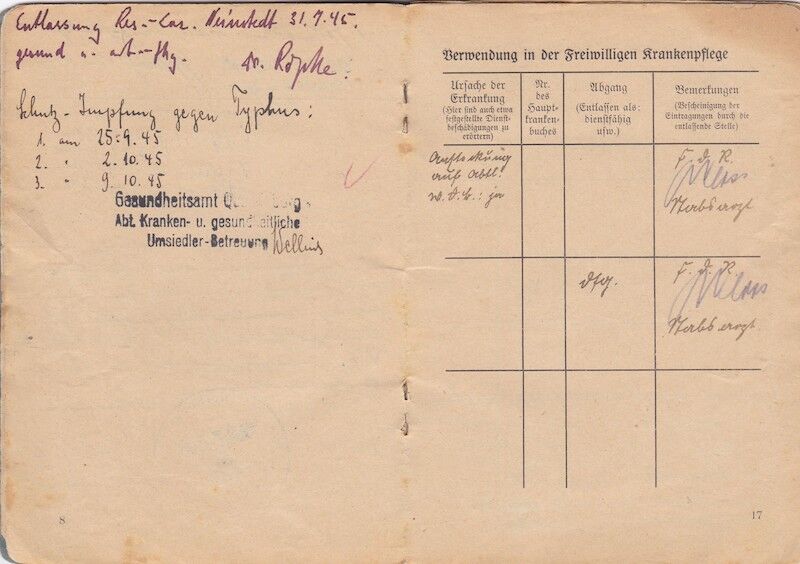 Entlassung Res.-Laz. Neinstedt 31.7.45.
gesund u. arb.-fhg. Dr. Röpke
Schutz-Impfung gegen Typhus:
1. am 25.9.45
2. " 2.10.45
3. " 9.10.45
Gesundheitsamt
Abt. Kranken- u. gesundheitliche
Umsiedler-Betreuung
8
Verwendung in der Freiwilligen Krankenpflege
Ursache der
Erkrankung
(Hier sind auch etwa
festgestellte Dienst-
beschädigungen zu
erörtern)
Nr.
des
Haupt-
kranken-
buches
Abgang
(Entlassen als:
dienstfähig
usw.)
Bemerkungen
(Bescheinigung der
Eintragungen durch die
entlassende Stelle)
Ansteckung
auf Abtl.
w.d.b.: ja
F. d. R.
Stabsarzt
dfg.
F. d. R.
Stabsarzt
17